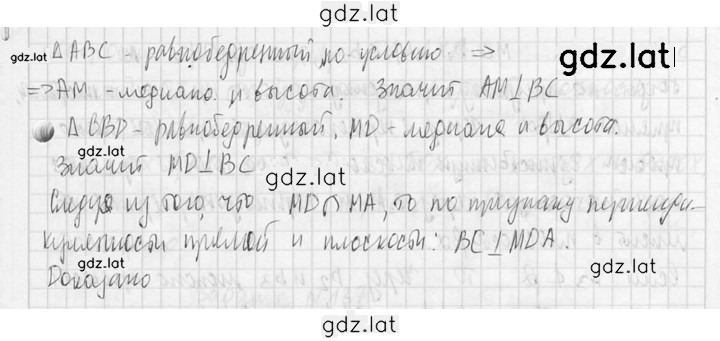 gdz.lat
∆ ABC - равнобедренный по условию =>
gdz.lat
gdz.lat
=> AM - медиана и высота. Значит AM⊥BC
∆ CBD - равнобедренный, MD - медиана и высота.
gdz.lat
Значит MD⊥BC
gdz.lat
Следуя из того, что MD∩MA, то по признаку перпенди-
кулярности прямой и плоскости: BC⊥MDA.
gdz.lat
gdz.lat
Доказано
gdz.lat